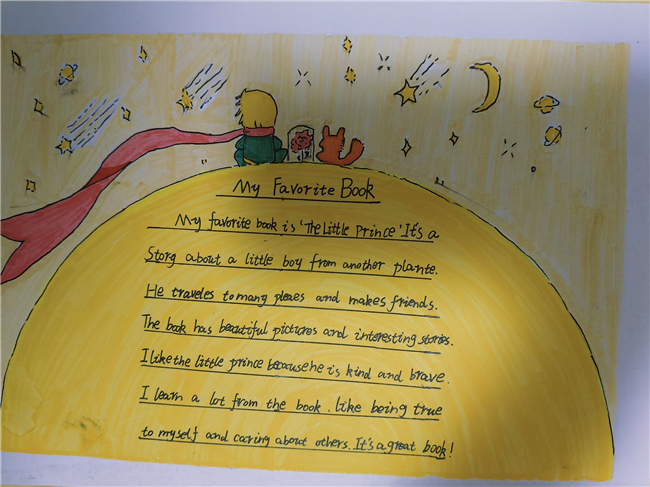 My Favorite Book
My favorite book is 'The Little Prince' It's a
Storg about a little boy from another plante.
He traveles to many pleaes and makes friends.
The book has beautiful pictures and interesting stories.
I like the little prince because he is kind and brave.
I learn a lot from the book. like being true
to myself and caring about others. It's a great book!